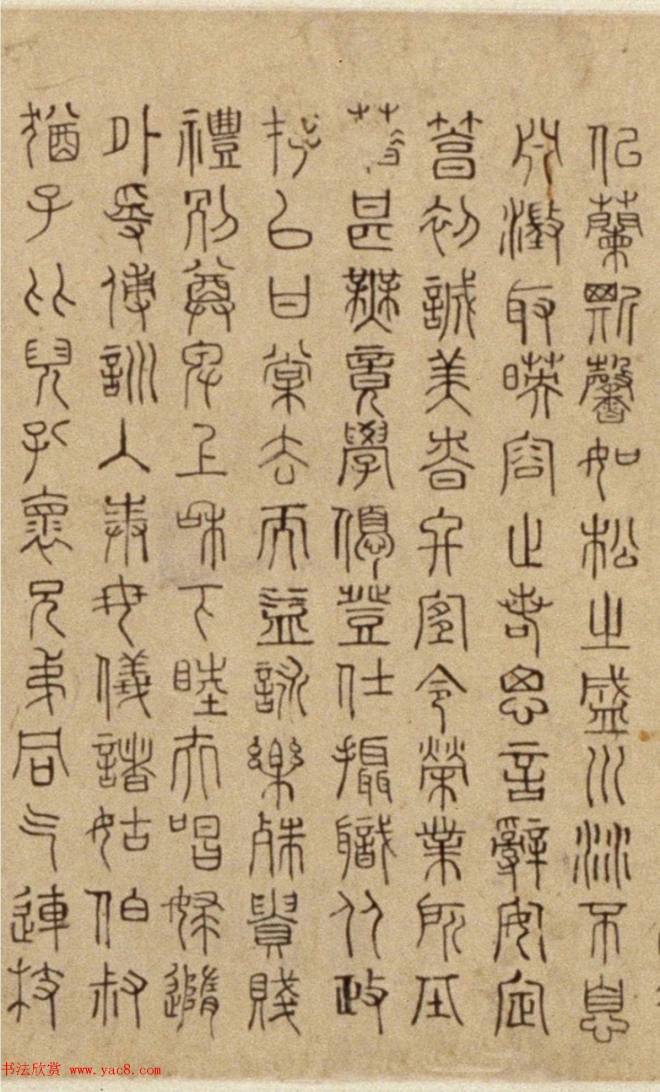 似蘭斯馨如松之盛川流不息
淵澂取暎容止若思言辭安定
篤初誠美昚終宜令榮業所基
藉甚無竟學優登仕攝職從政
存以甘棠去而益詠樂殊貴賤
禮別尊卑上和下睦夫唱婦隨
外受傅訓入奉母儀諸姑伯叔
猶子比兒孔懷兄弟同气連枝
书法欣赏 www.yac8.com